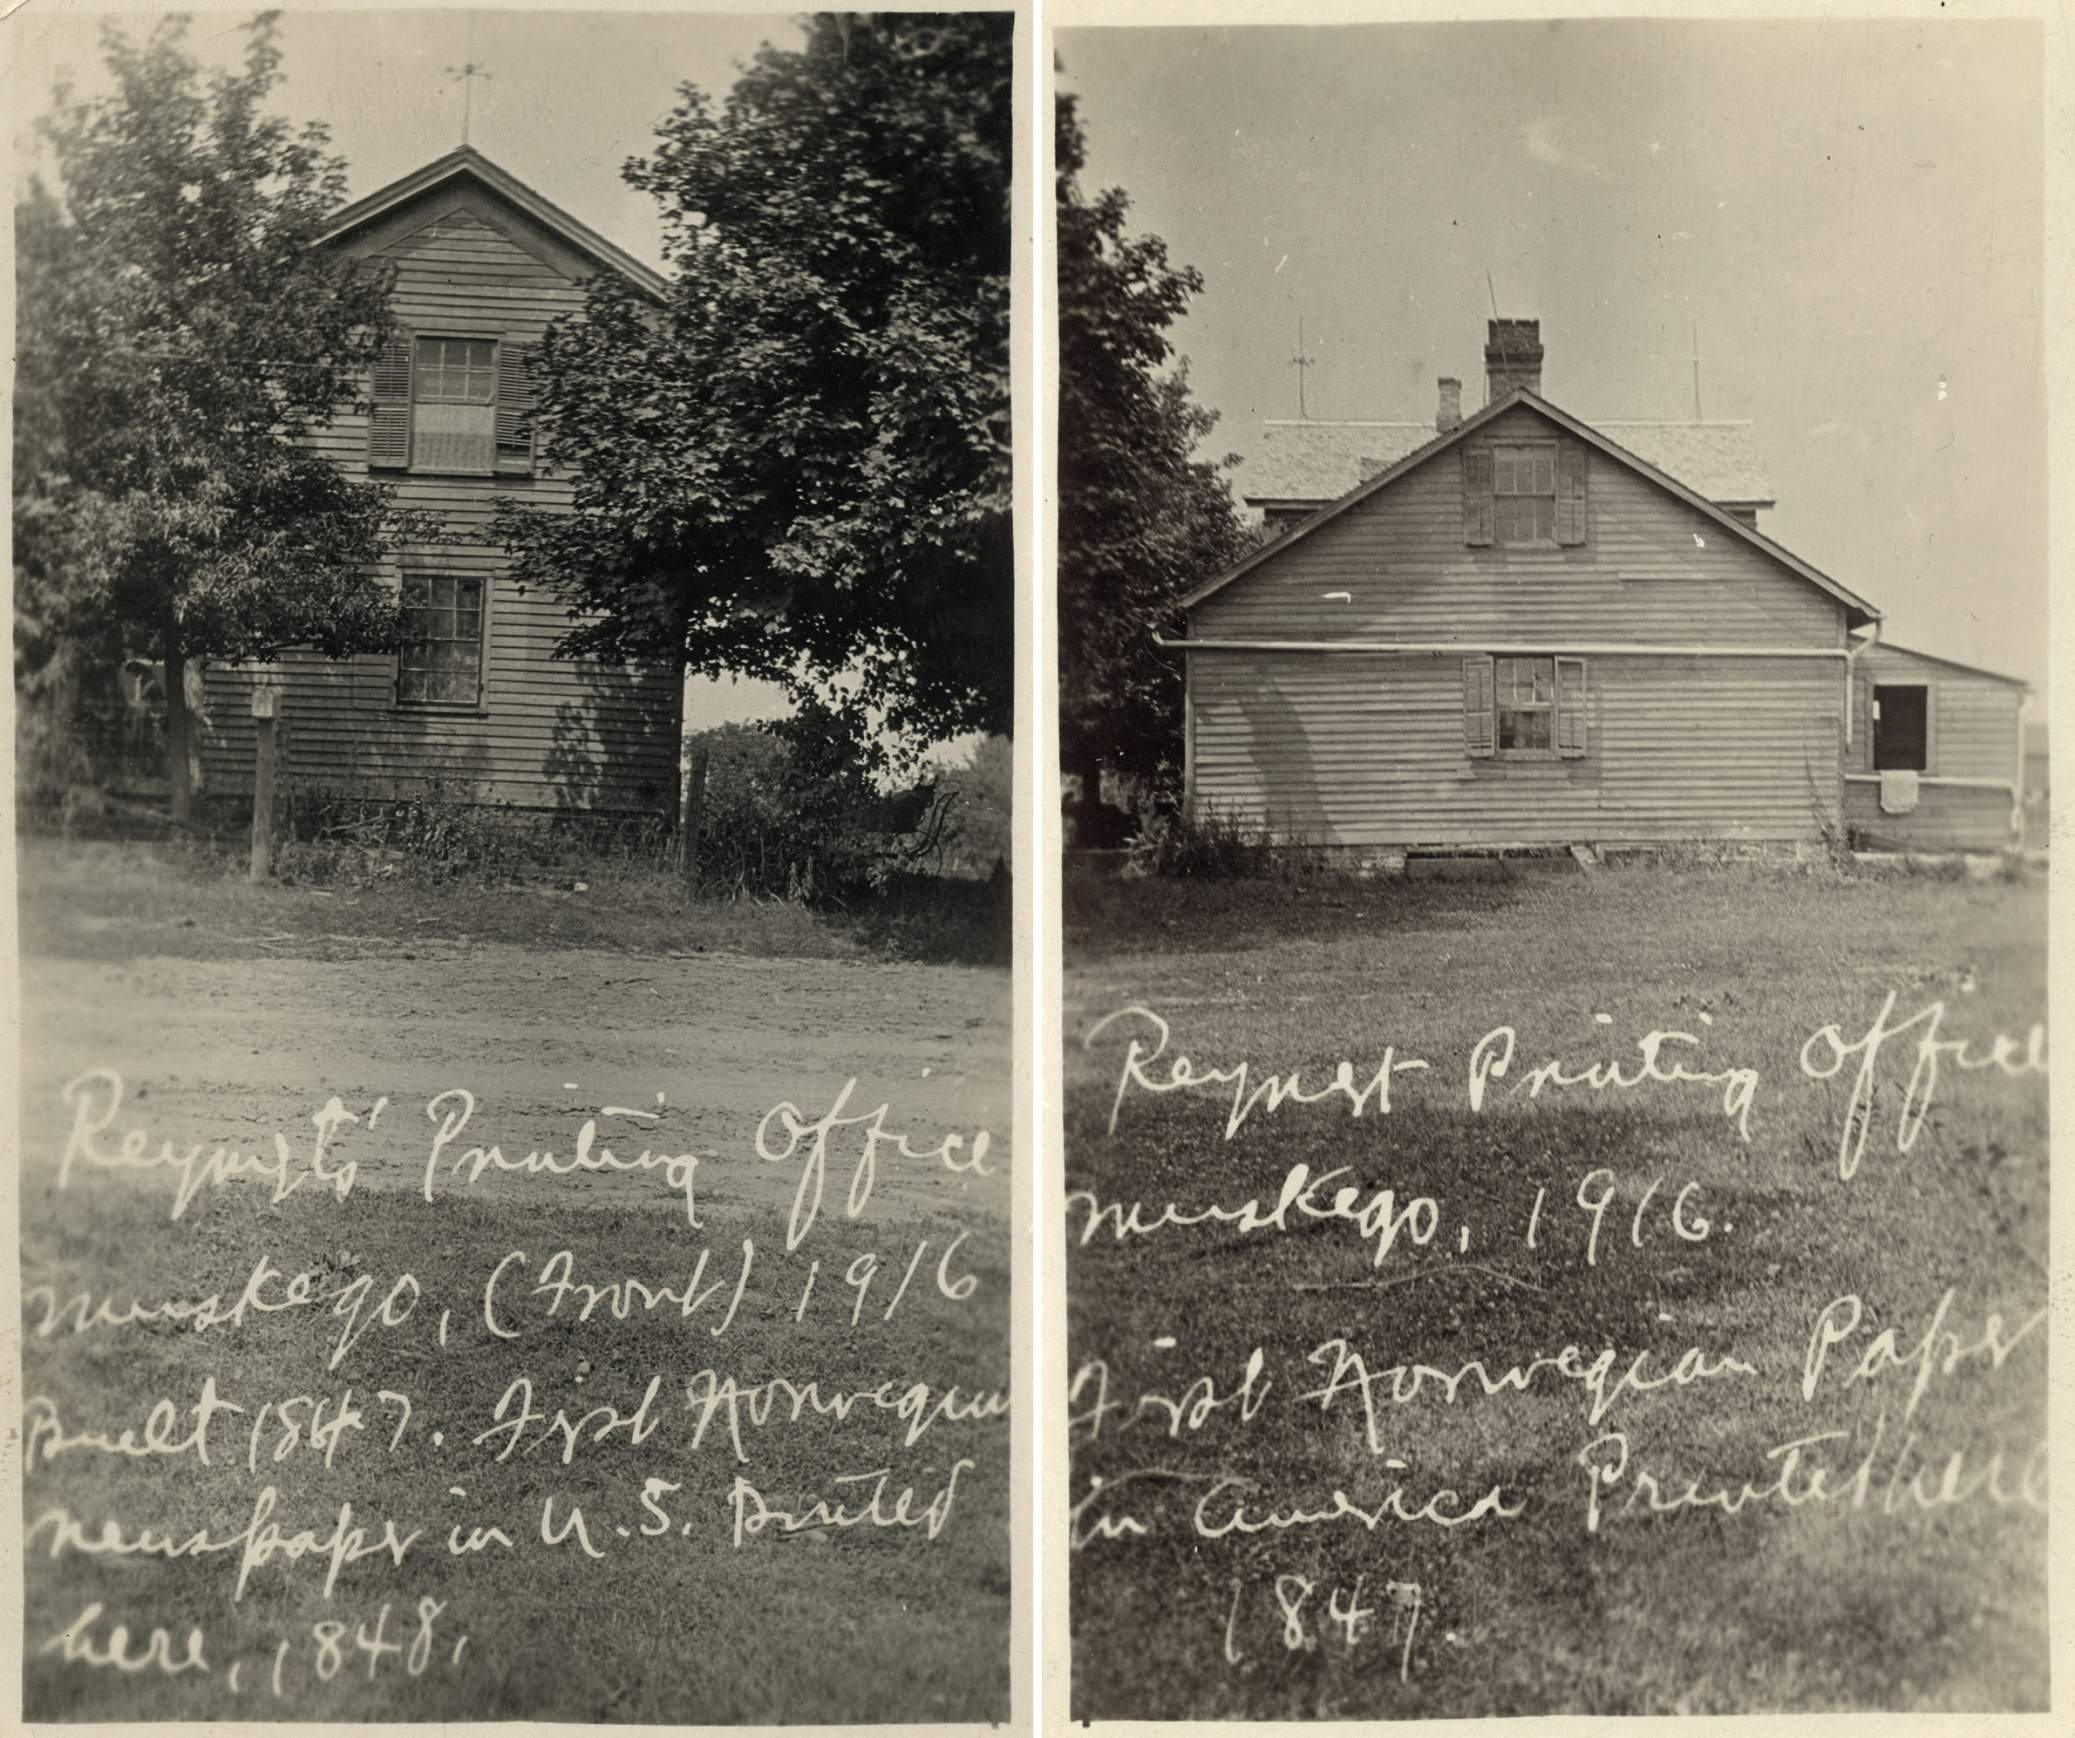 Reymerts' Printing Office
Muskego, (Front) 1916
Built 1847. First Norwegian
newspaper in U.S. Printed
here, 1848.
Reymert Printing Office
Muskego, 1916.
First Norwegian Paper
in America Printed here
1847.